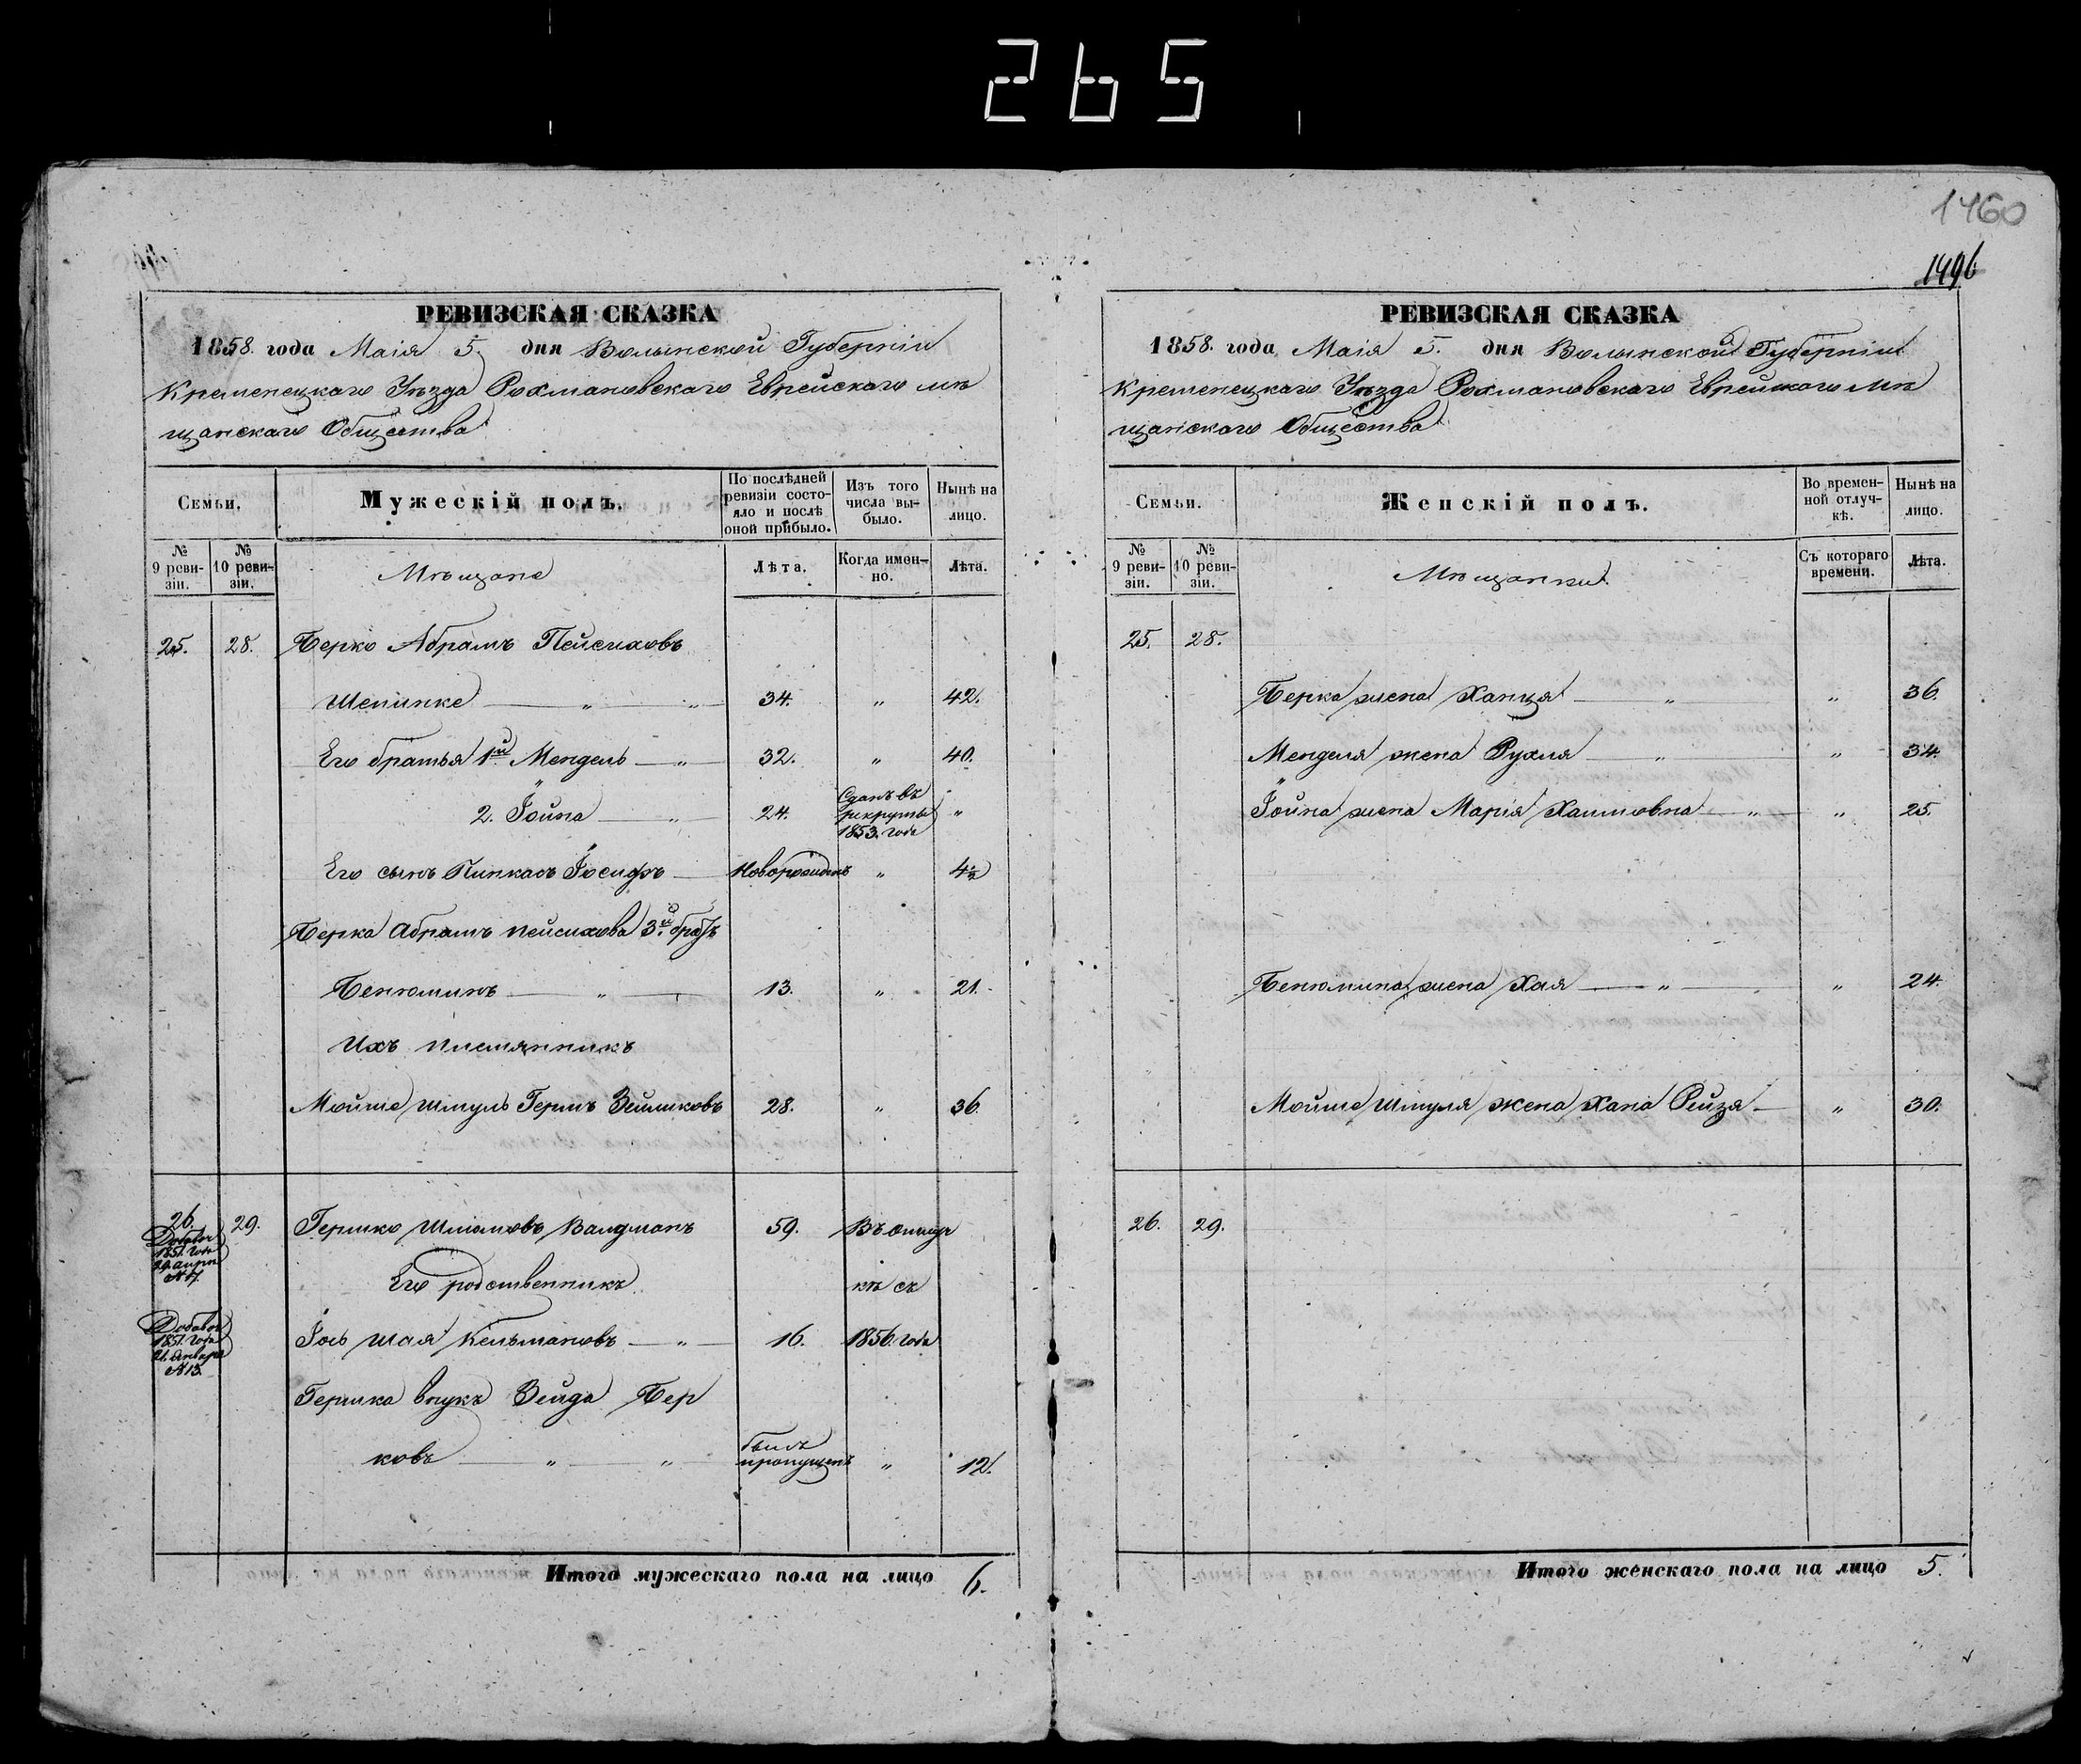 265
1460
1496
РЕВИЗСКАЯ СКАЗКА
1858. года Маія 5. дня Волынской Губерніи
Кременецкаго Уѣзда Рохмановскаго Еврейскаго мѣ
щанскаго Общества
Семьи.
Мужескій полъ.
По послѣдней ревизіи состояло и послѣ оной прибыло.
Изъ того числа выбыло.
Нынѣ на лицо.
№ 9 ревизіи.
№ 10 ревизіи.
Мѣщане
Лѣта.
Когда именно.
Лѣта.
25. 28. Берко Абрамъ Пейсиховъ
Шепинке — „ — „ 34. „ 42.
Его братья 1й Мендель — „ 32. „ 40.
2. Іойна — „ 24. Сданъ въ рекруты 1853. года „
Его сынъ Пинкасъ Іосифъ — Новорожденъ „ 4½
Берка Абрамъ Пейсихова 3й братъ
Бенюминъ — „ — 13. „ 21.
Ихъ племянникъ
Мойше Шмуль Гершъ Зейликовъ 28. „ 36.
26. 29. Гершко Шліомовъ Валдманъ 59. Въ отлуч
Добавоч 1851. года 29 апрѣл №7.
Его родственникъ кѣ съ
Добавоч 1851. года 21. Января №13.
Іось Шая Кельмановъ — „ — 16. 1856. года
Гершка внукъ Зейда Бер
ковъ — „ — „ — былъ пропущенъ „ 12.
Итого мужескаго пола на лицо 6.
РЕВИЗСКАЯ СКАЗКА
1858. года Маія 5. дня Волынской Губерніи
Кременецкаго Уѣзда Рохмановскаго Еврейскаго мѣ
щанскаго Общества
Семьи.
Женскій полъ.
Во временной отлучкѣ.
Нынѣ на лицо.
№ 9 ревизіи.
№ 10 ревизіи.
Мѣщанки
Съ котораго времени.
Лѣта.
25. 28.
Берка жена Ханця — „ „ 36.
Менделя жена Рухля — „ — „ 34.
Іойна жена Марія Хаимовна — „ — „ 25.
Бенюмина жена Хая — „ — „ 24.
Мойше Шмуля жена Хана Рейзя — „ 30.
26. 29.
Итого женскаго пола на лицо 5.